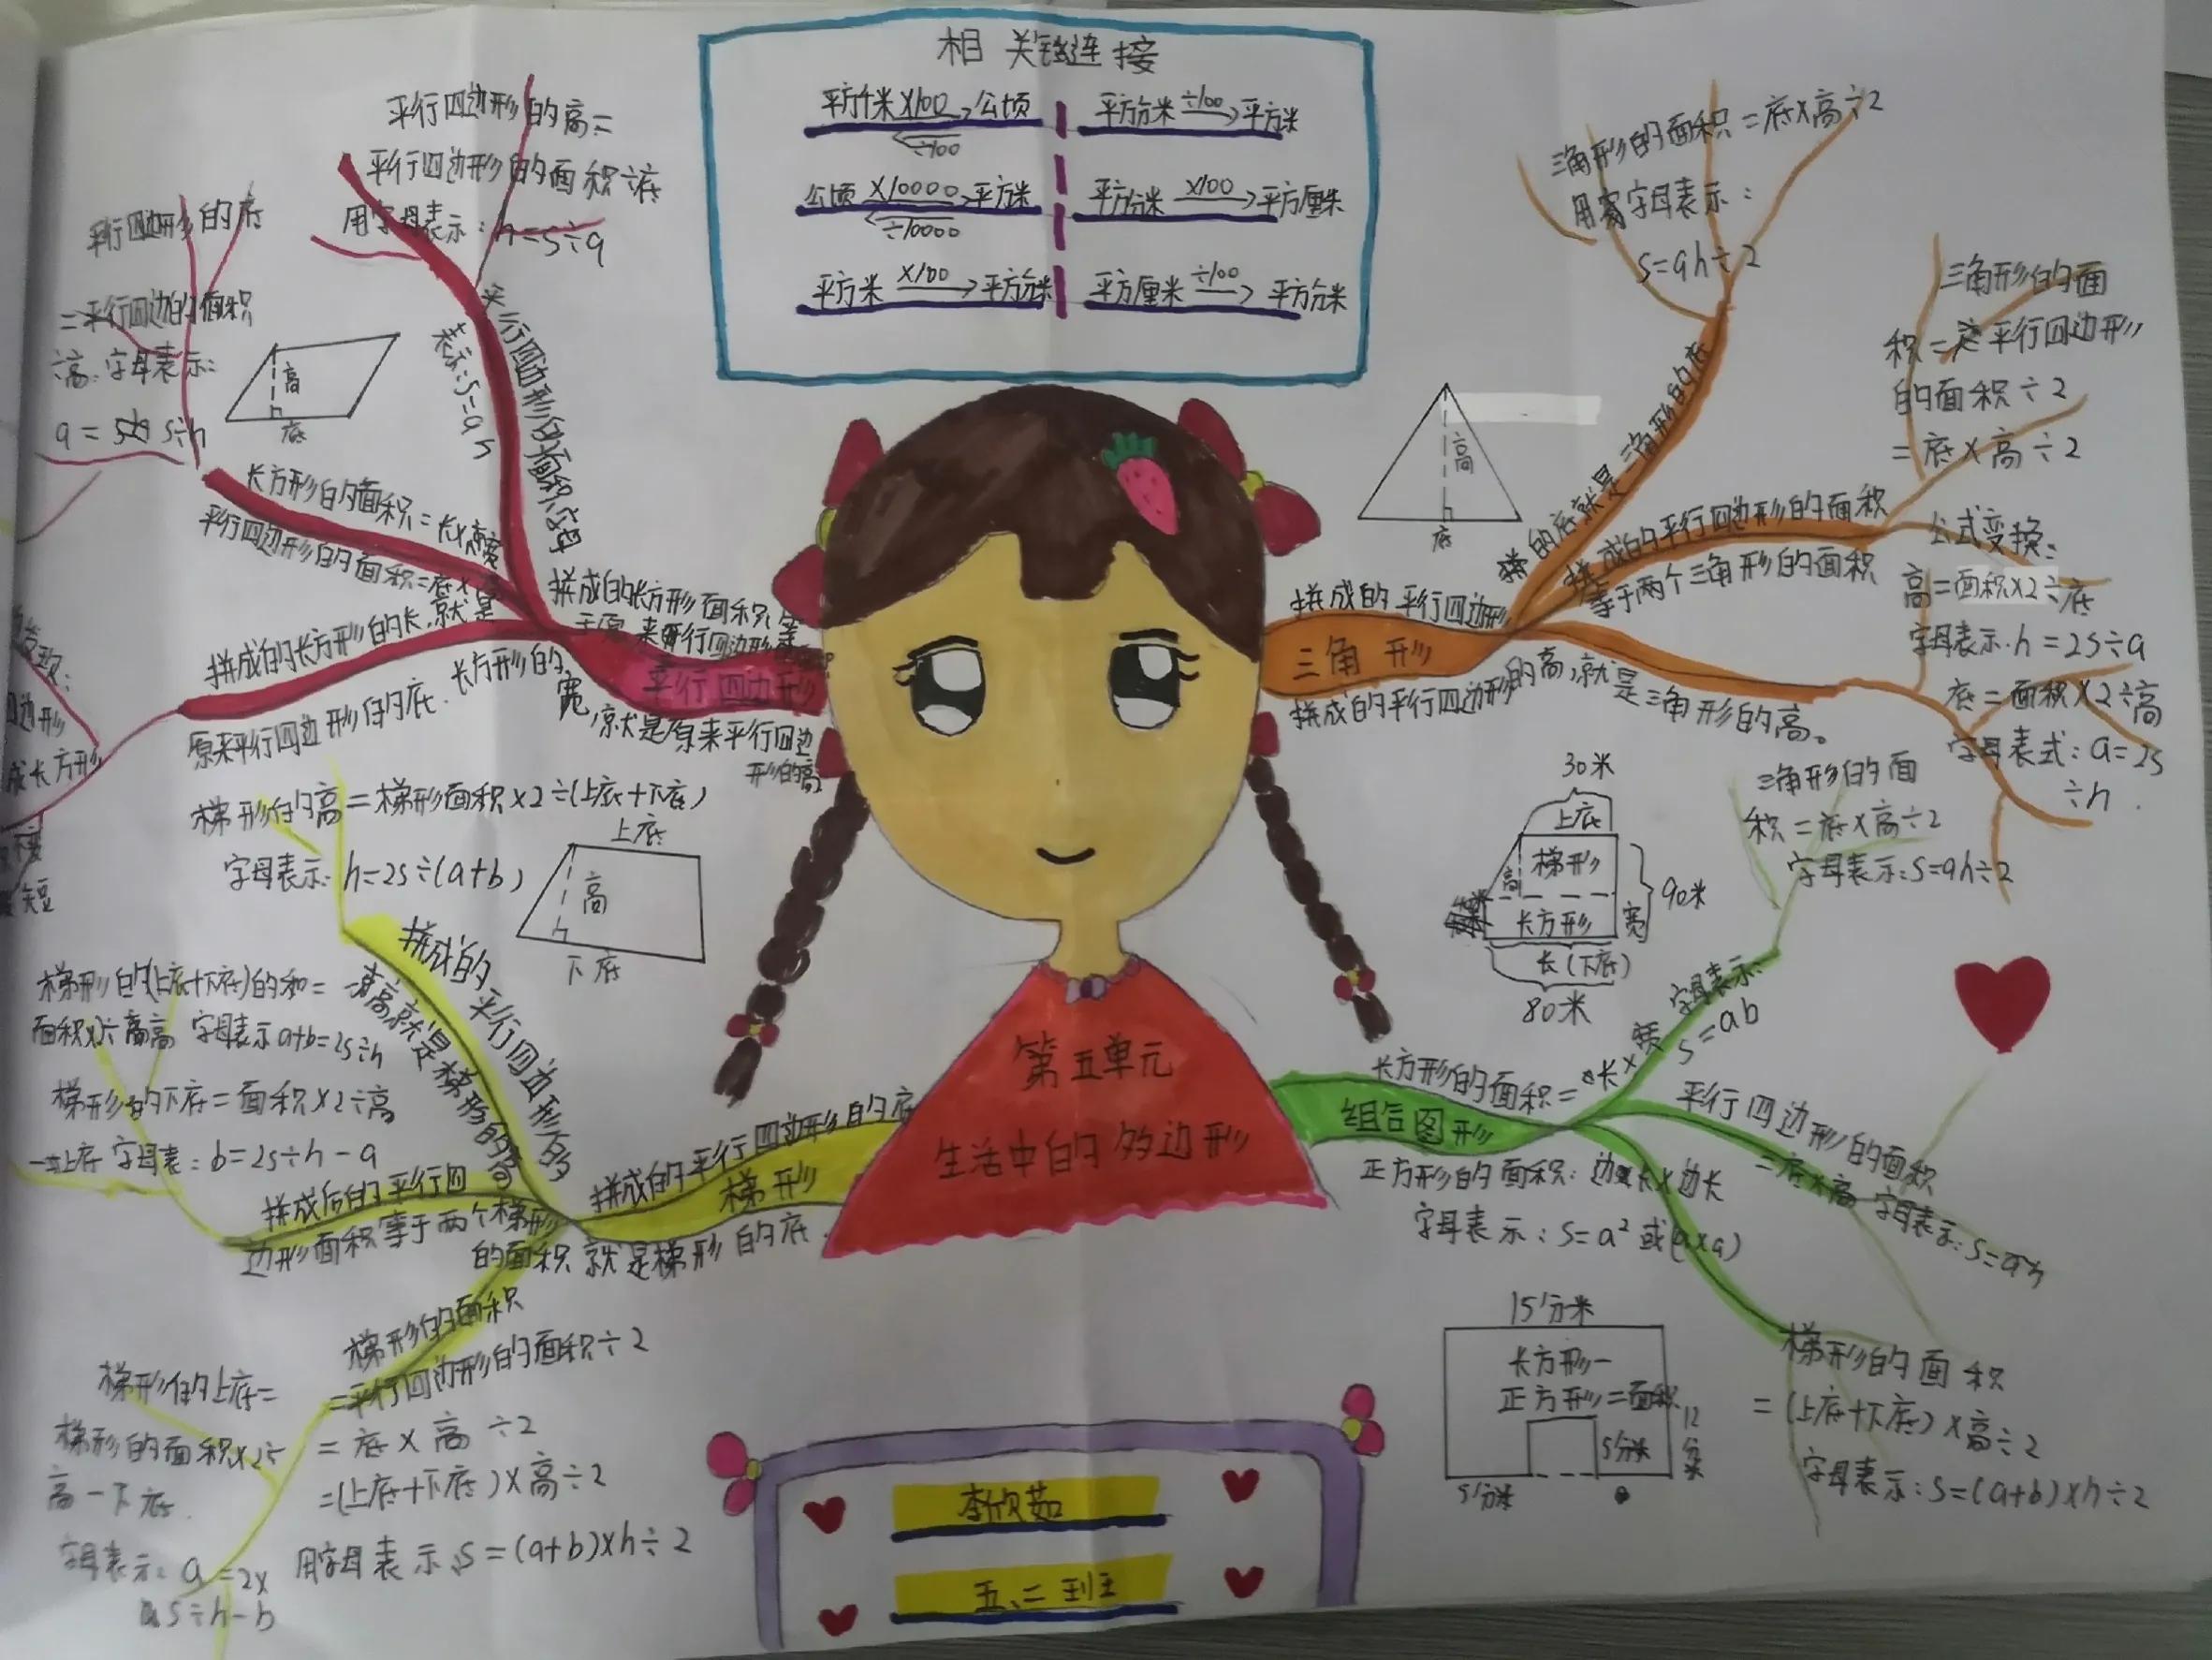 相关链连接
平方千米 ×100 → 公顷
÷100
平方分米 ÷100 → 平方米
公顷 ×10000 → 平方米
÷10000
平方分米 ×100 → 平方厘米
平方米 ×100 → 平方分米
平方厘米 ÷100 → 平方分米
平行四边形的高=
平行四边形的面积÷底
用字母表示:h=s÷a
平行四边形的底
=平行四边的面积
÷高.字母表示:
a= s÷h
高
底
平行四边形的面积字母
表示:s=ah
长方形的面积=长×宽
平行四边形的面积=底×
拼成的长方形的长,就是
原来平行四边形的底.长方形的
宽,就是原来平行四边
形的高
拼成的长方形面积,等
于原来平行四边形
平行四边形
边形
成长方形
短
三角形的面积=底×高÷2
用字母表示:
s=ah÷2
高
底
拼的底就是三角形的底
三角形的面
积=平行四边形
的面积÷2
=底×高÷2
拼成的平行四边形的面积
等于两个三角形的面积
公式变换:
高=面积×2÷底
字母表示.h=2s÷a
底=面积×2÷高
字母表式:a=2s
÷h.
拼成的平行四边形
三角形
拼成的平行四边形的高,就是三角形的高。
梯形的高=梯形面积×2÷(上底+下底)
字母表示:h=2s÷(a+b)
上底
高
下底
拼成的平行四边形的
高就是梯形的高
梯形的(上底+下底)的和=
面积×2÷高 字母表示a+b=2s÷h
梯形的下底=面积×2÷高
-上底 字母表:b=2s÷h-a
拼成后的平行四
边形面积等于两个梯形
的面积
拼成的平行四边形的底
梯形
就是梯形的底.
梯形的面积
=平行四边形的面积÷2
=底×高÷2
=(上底+下底)×高÷2
用字母表示:s=(a+b)×h÷2
梯形的上底=
梯形的面积×2÷
高-下底.
字母表示:a=2×
s÷h-b
第五单元
生活中的多边形
30米
上底
梯形
高
90米
长方形
宽
长(下底)
80米
三角形的面
积=底×高÷2
字母表示:s=ah÷2
长方形的面积=长×宽
字母表示:
s=ab
组合图形
正方形的面积:边长×边长
字母表示:s=a²或(a×a)
平行四边形的面积
=底×高 字母表示:s=ah
15分米
长方形-
正方形=面积
12分米
5分米
5分米
梯形的面积
=(上底+下底)×高÷2
字母表示:s=(a+b)×h÷2
李欣茹
五、二班